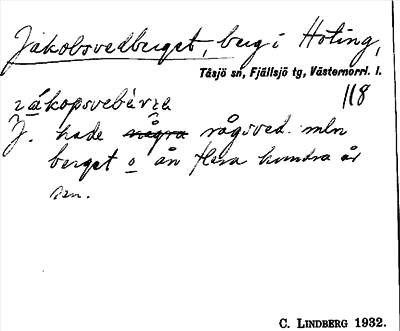 Jakobsvedberget, berg i Hoting,
Tåsjö sn, Fjällsjö tg, Västernorrl. l.
118
J. hade några rågsved. mln
berget o ån flera hundra år
sen.
C. LINDBERG 1932.